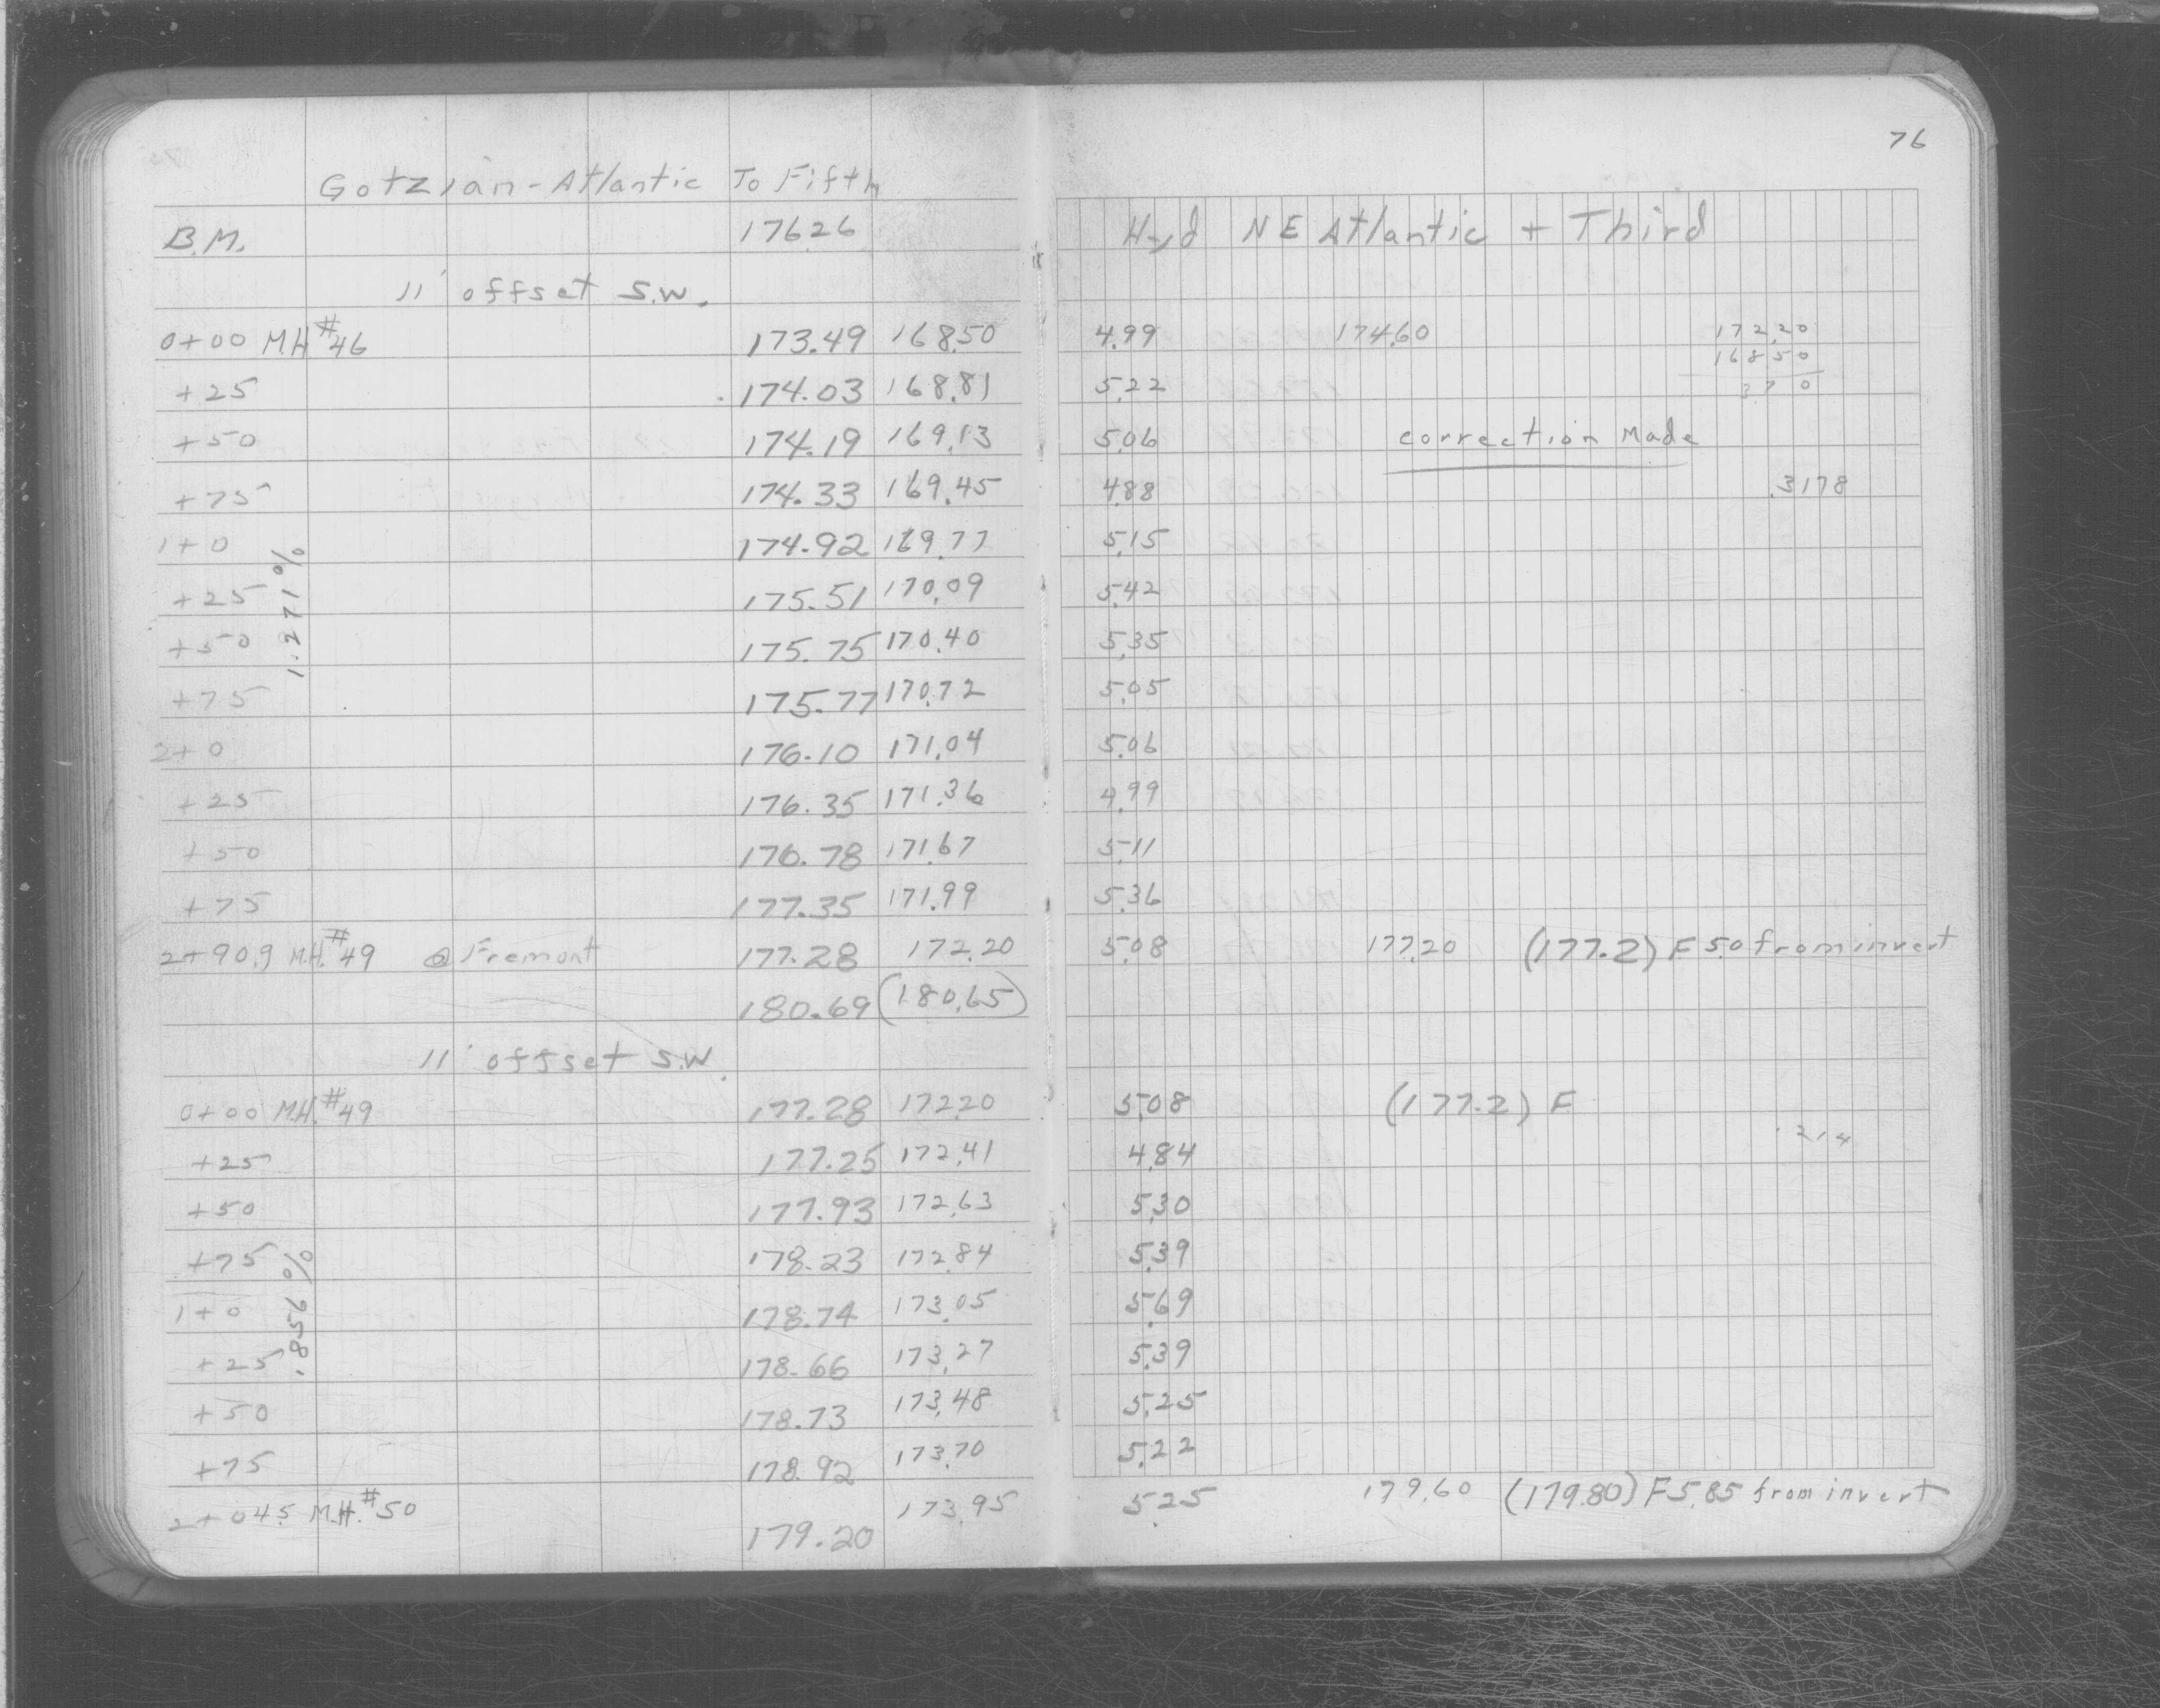 76
Gotzian-Atlantic To Fifth
B.M. 176.26 Hyd NE Atlantic + Third
11' offset S.W.
0+00 M.H #46 173.49 168.50 4.99 174.60 172.20
168.50
+25 174.03 168.81 5.22 3 70
+50 174.19 169.13 5.06 correction Made
+75 174.33 169.45 4.88 .3178
1+0 174.92 169.77 5.15
+25 175.51 170.09 5.42
+50 175.75 170.40 5.35
1.271%
+75 175.77 170.72 5.05
2+0 176.10 171.04 5.06
+25 176.35 171.36 4.99
+50 176.78 171.67 5.11
+75 177.35 171.99 5.36
2+90.9 M.H. #49 @ Fremont 177.28 172.20 5.08 177.20 (177.2) F 5.0 from invert
180.69 (180.65)
11' offset S.W.
0+00 M.H. #49 177.28 172.20 5.08 (177.2) F
.214
+25 177.25 172.41 4.84
+50 177.93 172.63 5.30
+75 178.23 172.84 5.39
1+0 178.74 173.05 5.69
.856%
+25 178.66 173.27 5.39
+50 178.73 173.48 5.25
+75 178.92 173.70 5.22
2+04.5 M.H. #50 179.20 173.95 5.25 179.60 (179.80) F 5.85 from invert